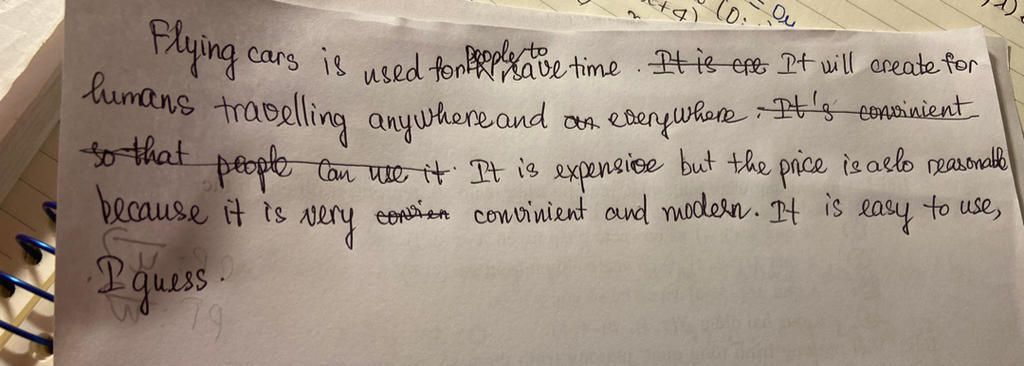 Flying cars is used for people to save time. It is epe It will create for
humans travelling anywhere and an everywhere. It's convinient
so that people can use it. It is expensive but the price is aslo reasonable
because it is very convien convinient and modern. It is easy to use,
I guess.